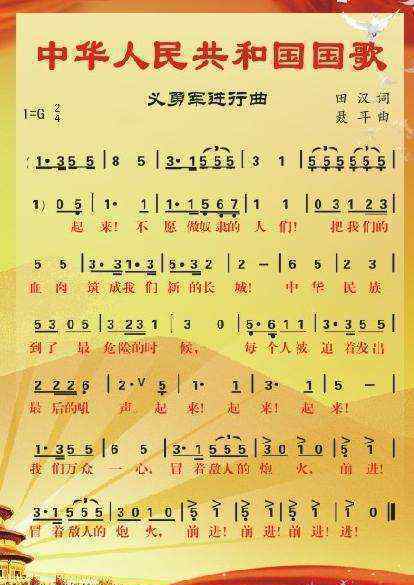 中华人民共和国国歌
义勇军进行曲
田汉词
聂耳曲
1=G 2/4
(1·3 5 5 | 6 5 | 3·1 5 5 5 | 3 1 | 5 5 5 5 5 5 |
1) 0 5 | 1· 1 | 1·1 5 6 7 | 1 1 | 0 3 1 2 3 |
起来!不愿做奴隶的人们!把我们的
5 5 | 3·3 1·3 | 5·3 2 | 2 — | 6 5 | 2 3 |
血肉筑成我们新的长城!中华民族
5 3 0 5 | 3 2 3 1 | 3 0 | 5·6 1 1 | 3·3 5 5 |
到了最危险的时候,每个人被迫着发出
2 2 2 6 | 2·V 5 | 1· 1 | 3· 3 | 5 — |
最后的吼声。起来!起来!起来!
1·3 5 5 | 6 5 | 3·1 5 5 5 | 3 0 1 0 | 5 1 |
我们万众一心,冒着敌人的炮火、前进!
3·1 5 5 5 | 3 0 1 0 | 5 1 | 5 1 | 5 1 | 1 0 ‖
冒着敌人的炮火,前进!前进!前进!进!